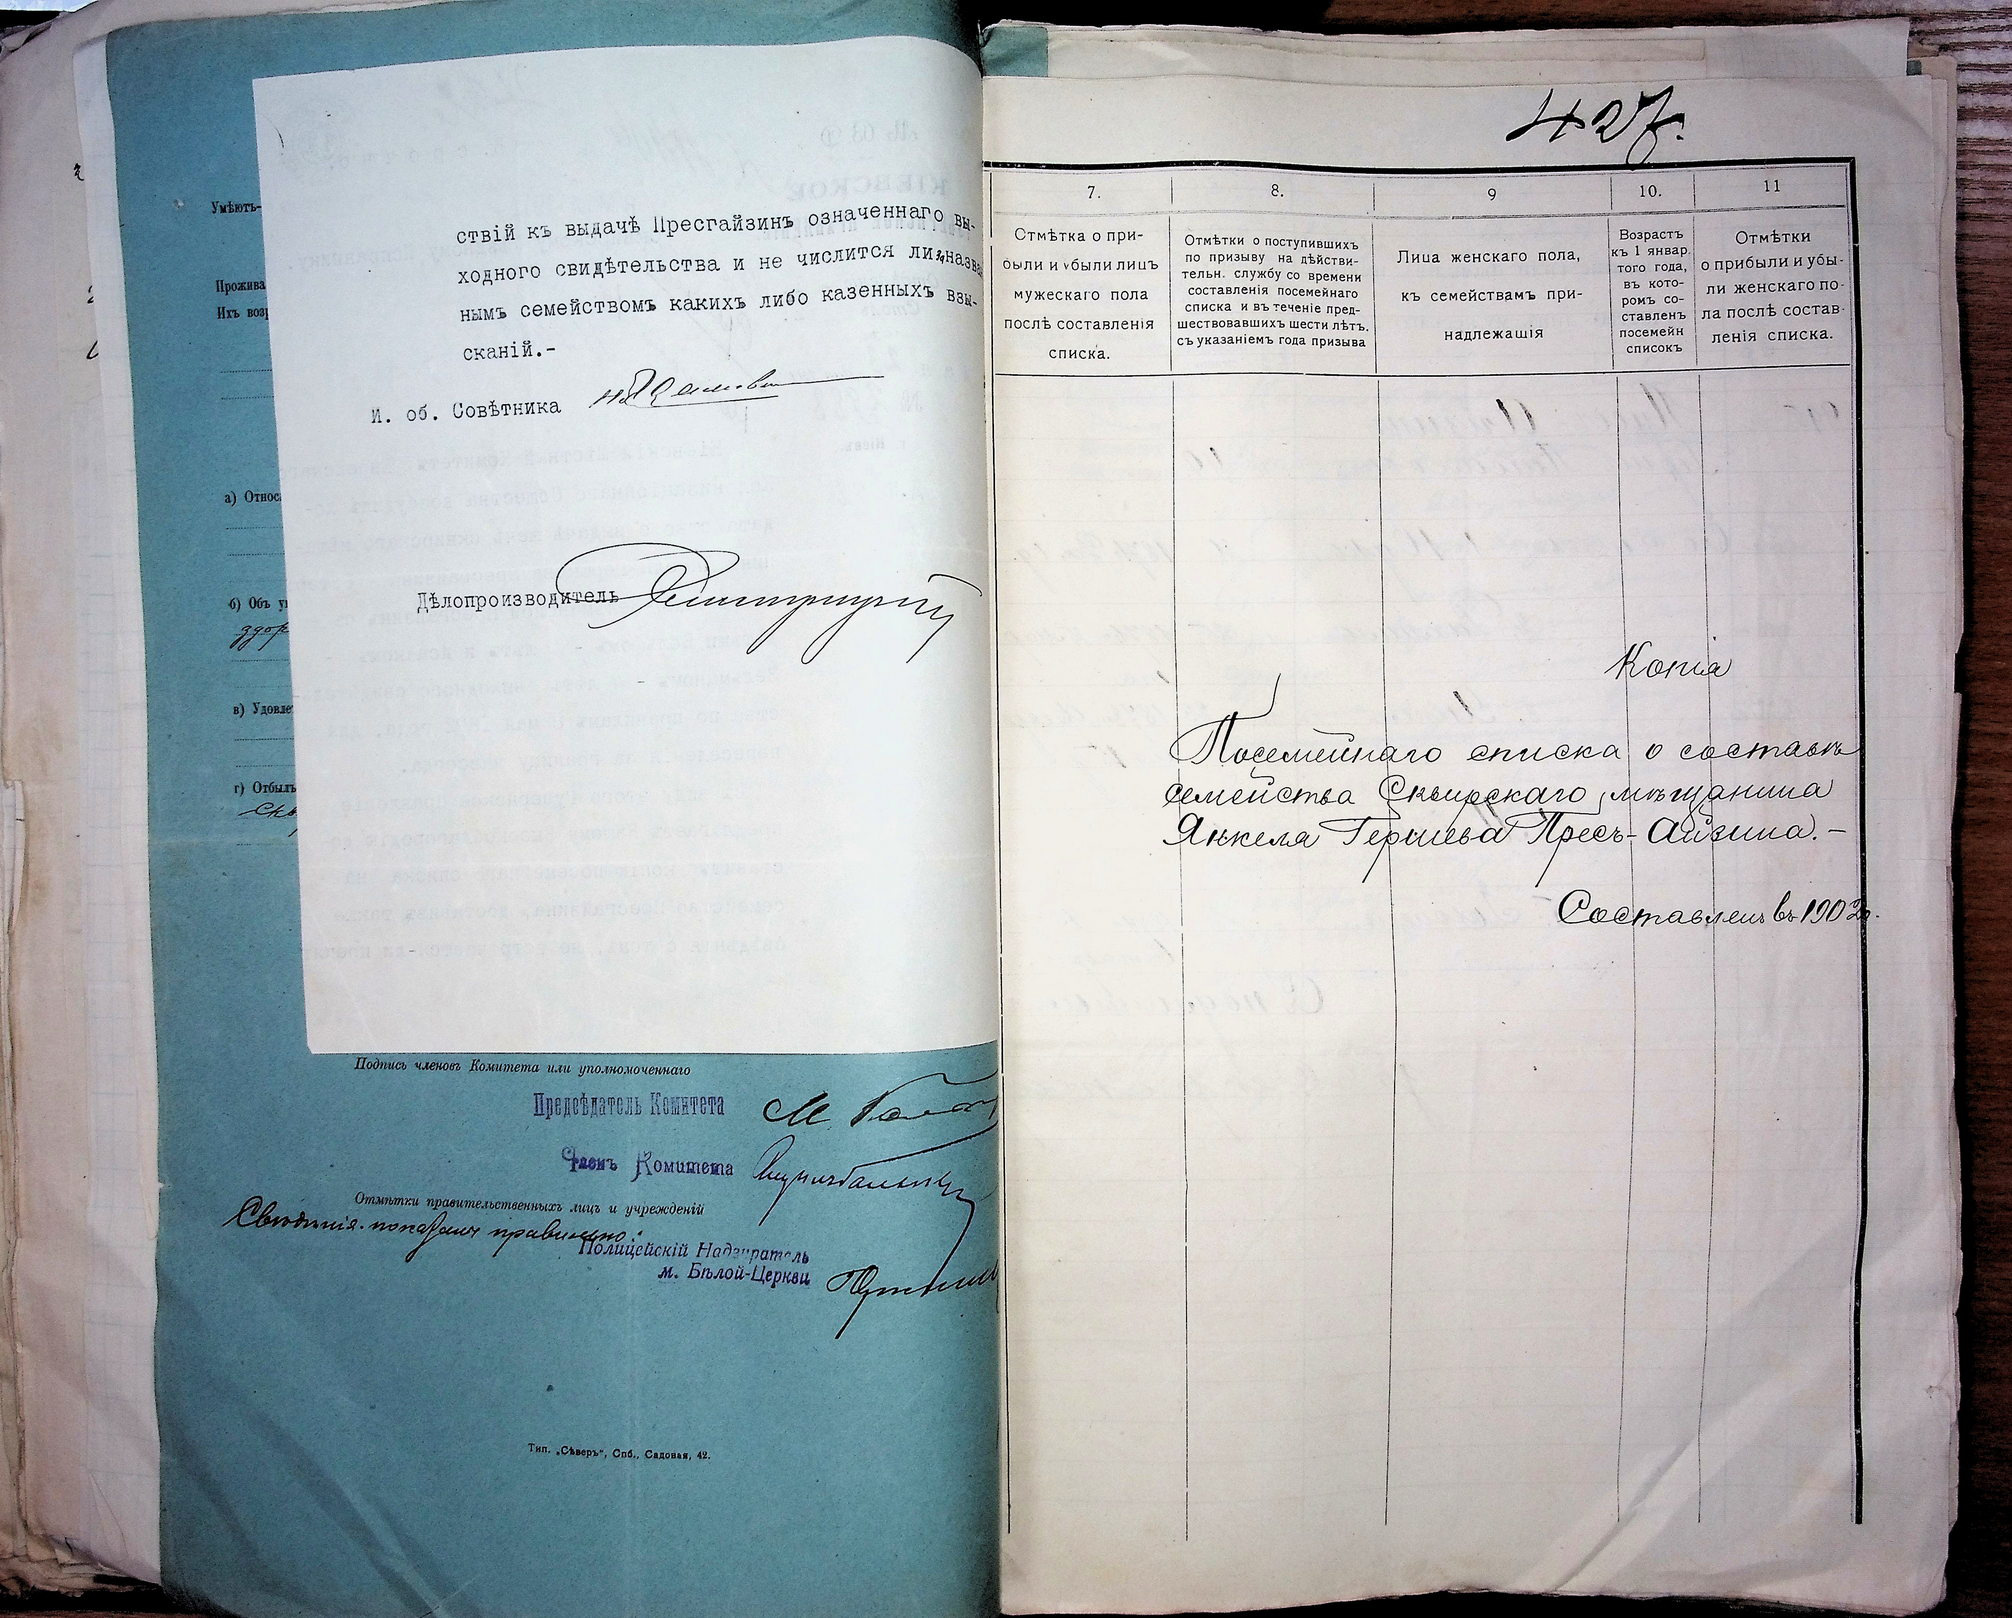 Умѣютъ-
Прожива
Ихъ возр
а) Относ
б) Объ
здор
в) Удовле
г) Отбыл
ствій къ выдачѣ Пресгайзинъ означеннаго вы-
ходного свидѣтельства и не числится ли за назва
нымъ семействомъ какихъ либо казенныхъ взы-
сканій.-
И. об. Совѣтника
Дѣлопроизводитель
Подпись членовъ Комитета или уполномоченнаго
Предсѣдатель Комитета
Членъ Комитета
Отмѣтки правительственныхъ лицъ и учрежденій
Свѣдѣнія показаны правильно.
Полицейскій Надзиратель
м. Бѣлой-Церкви
Тип. „Сѣверъ“, Спб., Садовая, 42.
427.
7.
8.
9
10.
11
Отмѣтка о при-
были и убыли лицъ
мужескаго пола
послѣ составленія
списка.
Отмѣтки о поступившихъ
по призыву на дѣйстви-
тельн. службу со времени
составленія посемейнаго
списка и въ теченіе пред-
шествовавшихъ шести лѣтъ.
съ указаніемъ года призыва
Лица женскаго пола,
къ семействамъ при-
надлежашія
Возрастъ
къ 1 январ.
того года,
въ кото-
ромъ со-
ставленъ
посемейн
списокъ
Отмѣтки
о прибыли и убы-
ли женскаго по-
ла послѣ состав-
ленія списка.
Копія
Посемейнаго списка о составѣ
семейства Сквирскаго мѣщанина
Янкеля Гершева Пресъ-Айзина.-
Составленъ въ 1902 г.